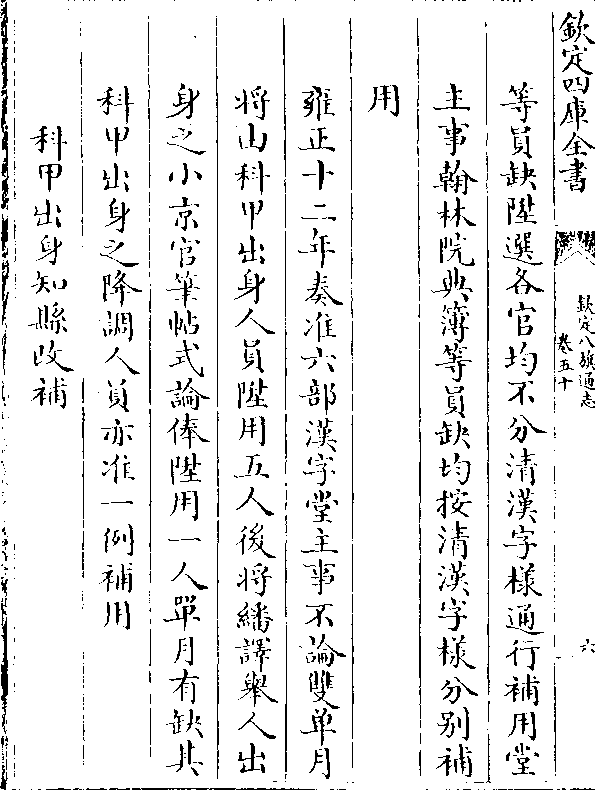 欽定四庫全書
欽定八旗通志
卷五十
六
等員缺陞選各官均不分清漢字様通行補用堂
主事翰林院典簿等員缺均按清漢字様分别補
用
雍正十二年奏准六部漢字堂主事不論雙单月
将山科甲出身人員陞用五人後将繙譯舉人出
身之小京官筆帖式論俸陞用一人單月有缺其
科甲出身之降調人員亦准一例補用
科甲出身知縣改補